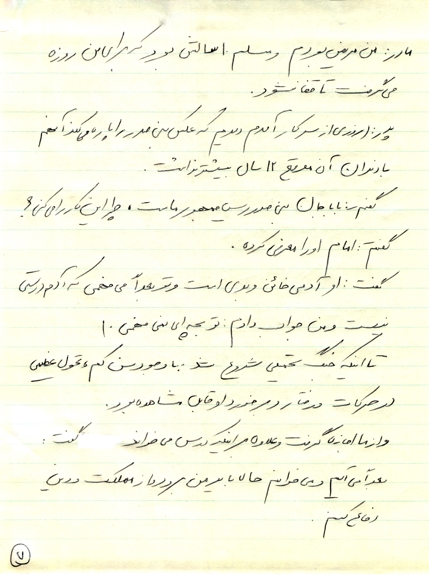 مادر: من مریض بودم و مسلم ۱۰ سالش بود که برای من روزه
می‌گرفت تا قضا نشود.
پدر: روزی از سر کار آمدم دیدم که عکس بنی صدر را پاره می‌کند آنهم
با دندان آن موقع ۱۲ سال بیشتر نداشت.
گفتم: بابا جان بنی صدر رئیس جمهور ماست، چرا این کار را می‌کنی؟
گفت: امام او را معرفی کرده.
گفت: او آدمی خائن و بدی است و تو بعداً می‌فهمی که آدم درستی
نیست و من جواب دادم: تو بچه‌ای نمی‌فهمی!
تا اینکه جنگ تحمیلی شروع شد. با وجود سن کم، تحول عظیمی
در حرکات و رفتار و برخورد او قابل مشاهده بود.
و از ما اجازه گرفت و علاوه بر اینکه درس می‌خواند گفت:
بعداً می‌آیم و می‌خوانم حالا باید من بروم و از مملکت و دین
دفاع کنم.
۷